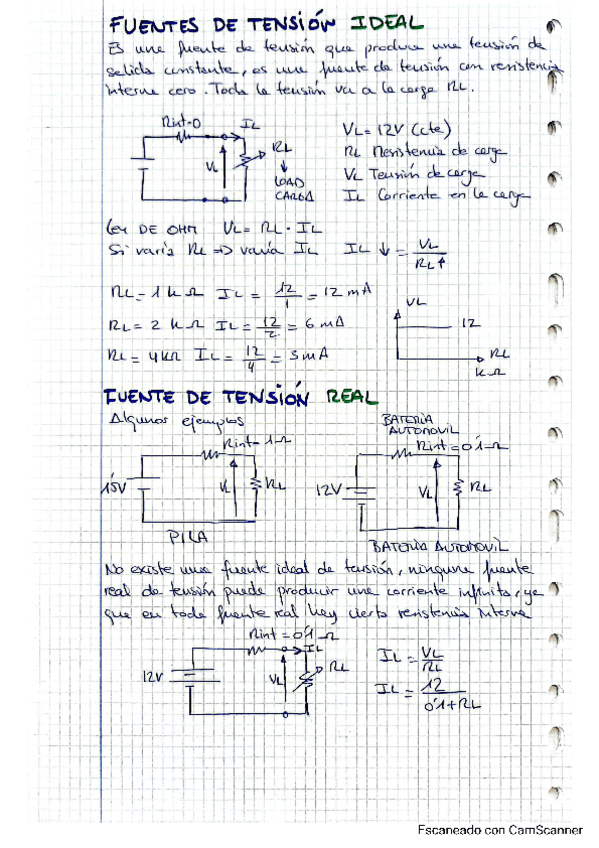 FUENTES DE TENSIÓN IDEAL
Es una fuente de tensión que produce una tensión de
salida constante, es una fuente de tensión con resistencia
interna cero. Toda la tensión va a la carga RL.
Rint=0
IL
RL
VL
LOAD
CARGA
VL= 12V (cte)
RL Resistencia de carga
VL Tensión de carga
IL Corriente en la carga
LEY DE OHM VL= RL · IL
Si varía RL => varía IL IL ↓ = VL / RL↑
RL = 1 kΩ IL = 12/1 = 12 mA
RL = 2 kΩ IL = 12/2 = 6 mA
RL = 4kΩ IL = 12/4 = 3mA
VL
12
RL
kΩ
FUENTE DE TENSIÓN REAL
Algunos ejemplos
Rint=1Ω
1'5V
VL
RL
PILA
BATERIA
AUTOMOVIL
Rint=0'1Ω
12V
VL
RL
BATERIA AUTOMOVIL
No existe una fuente ideal de tensión, ninguna fuente
real de tensión puede producir una corriente infinita, ya
que en toda fuente real hay cierta resistencia interna
Rint=0'1Ω
IL
12V
VL
RL
IL = VL / RL
IL = 12 / 0'1+RL
Escaneado con CamScanner